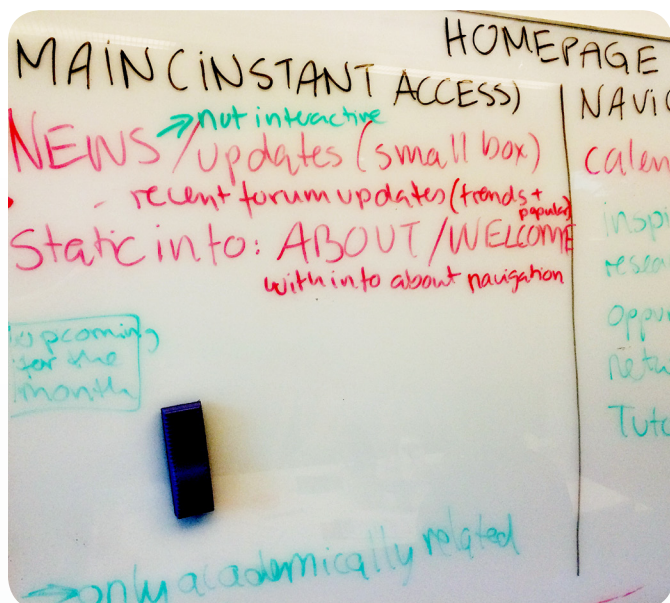 HOMEPAGE
MAIN (INSTANT ACCESS)
→ not interactive
NEWS / updates (small box)
- recent forum updates (trends + popular)
Static info: ABOUT / WELCOME
with info about navigation
upcoming
for the
month
→ only academically related
NAVIG
calen
inspi
resea
oppur
netw
Tuto